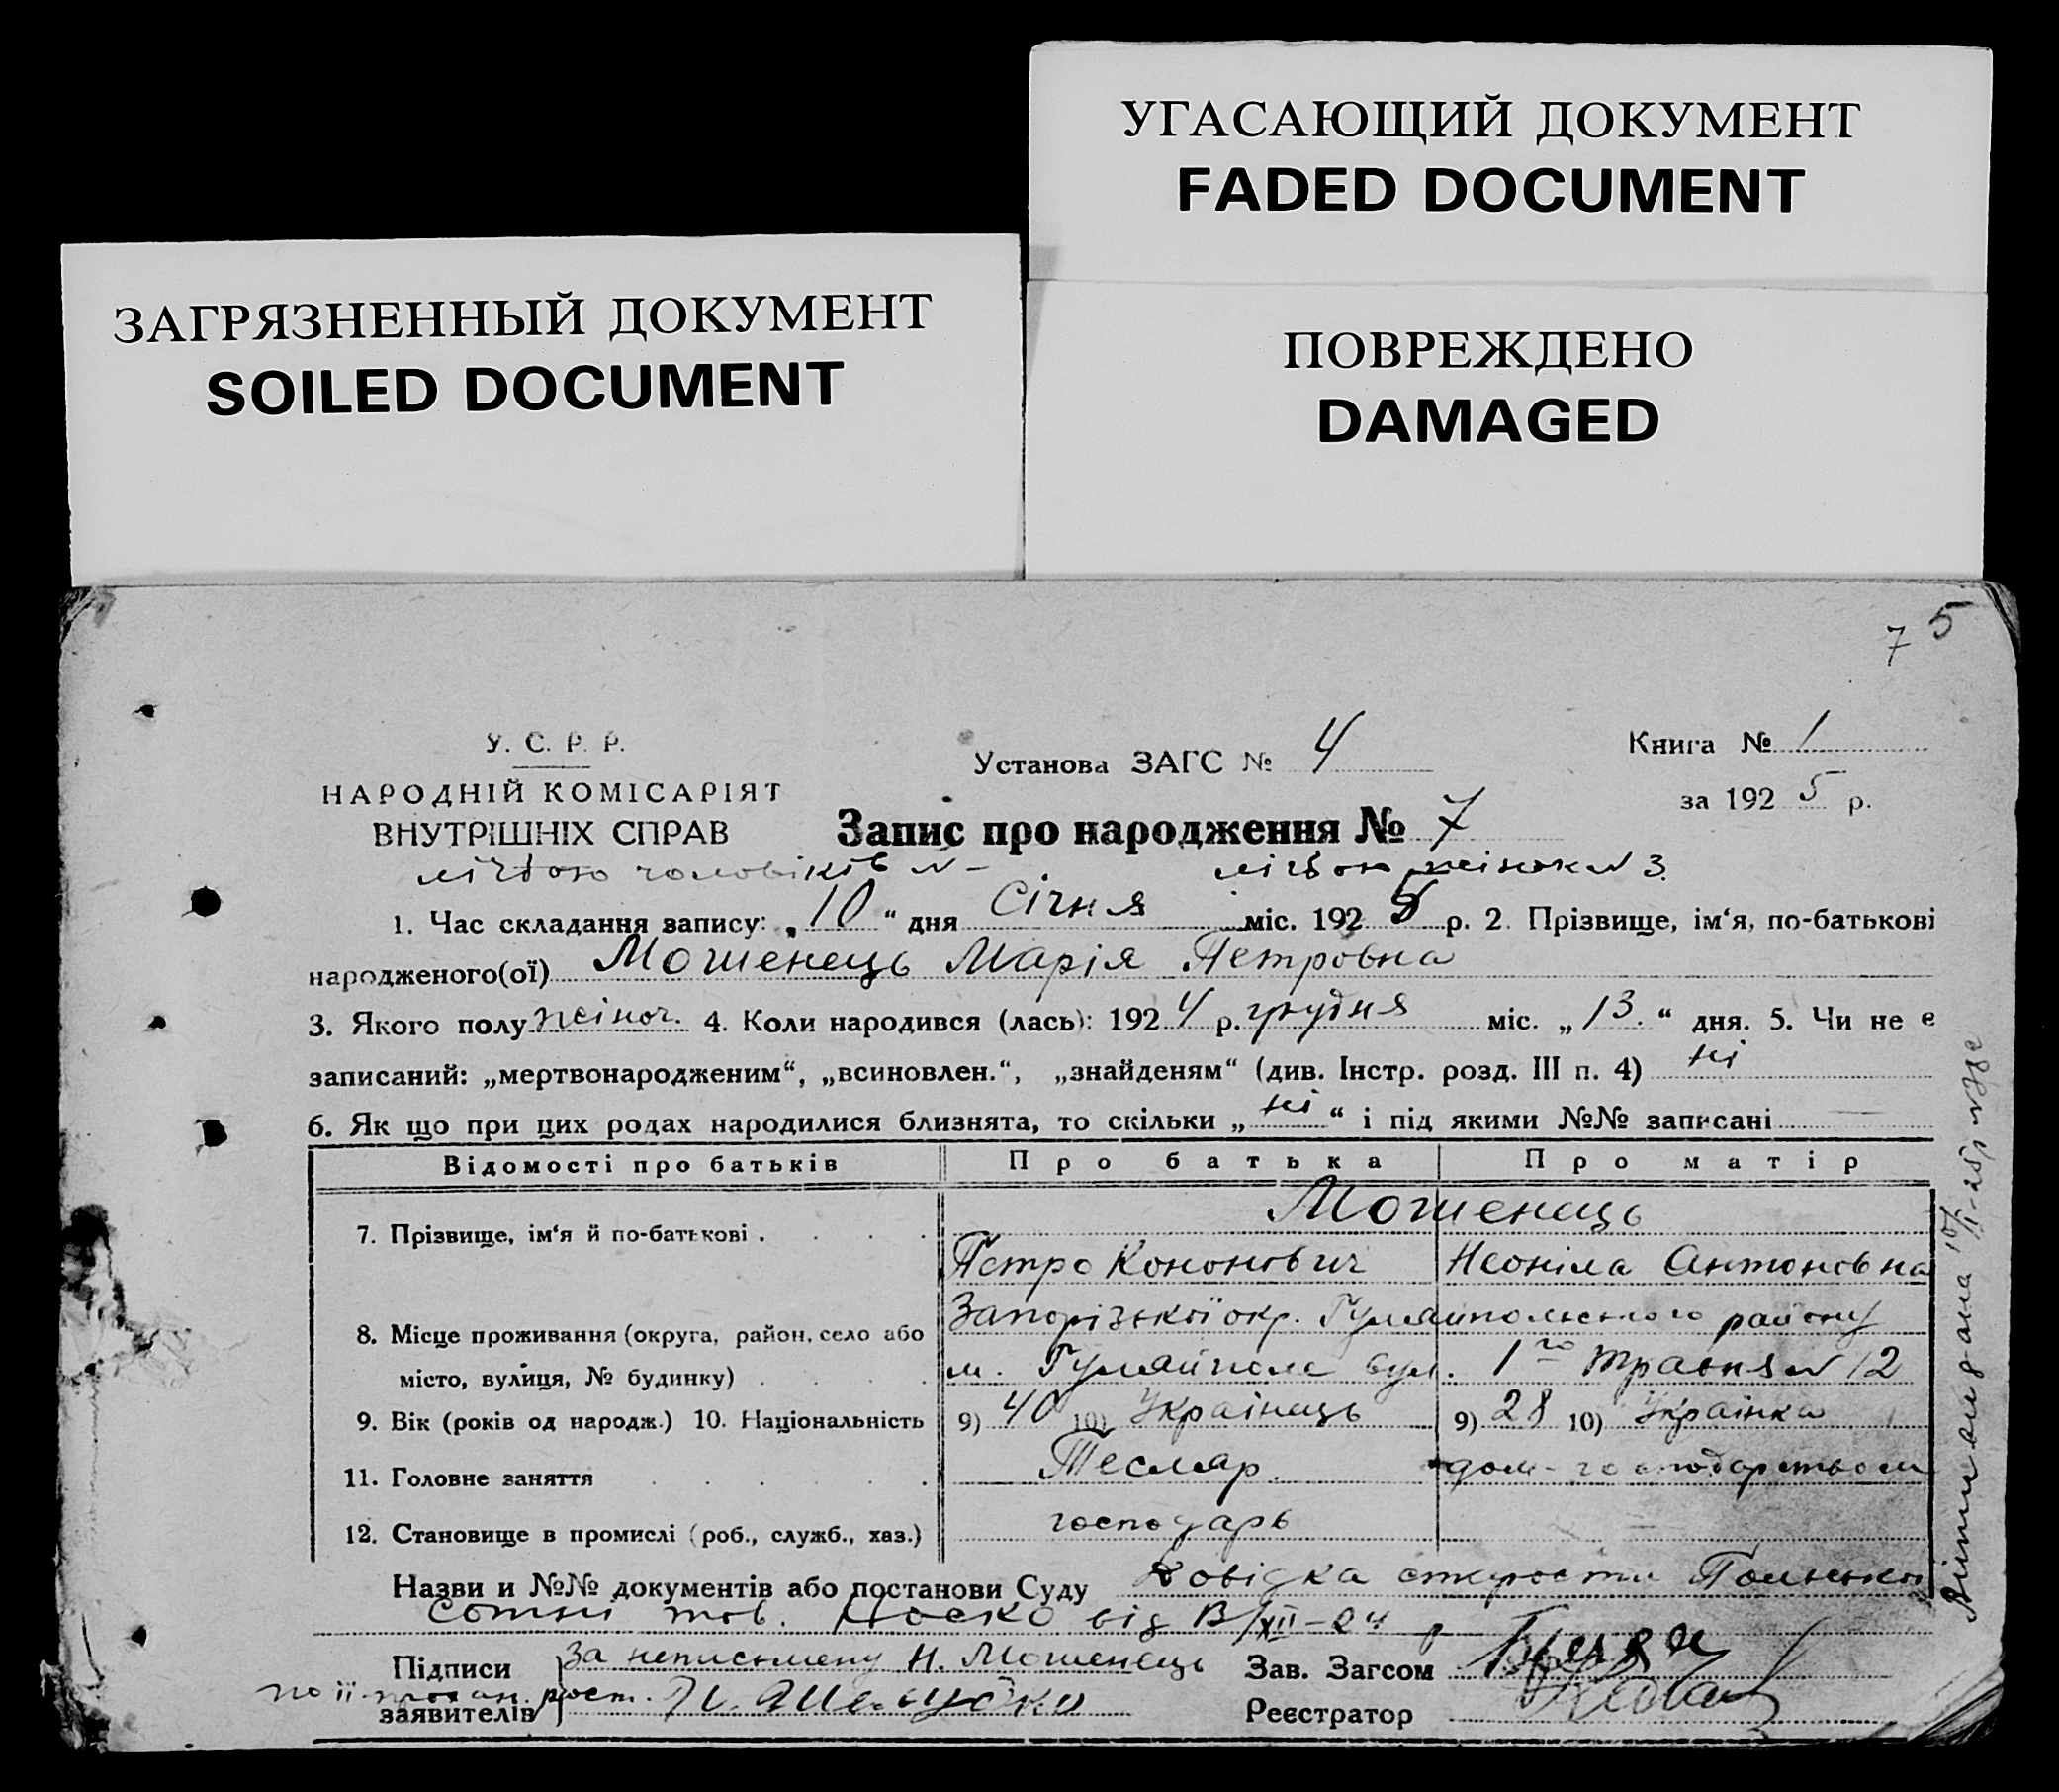 УГАСАЮЩИЙ ДОКУМЕНТ
FADED DOCUMENT
ЗАГРЯЗНЕННЫЙ ДОКУМЕНТ
SOILED DOCUMENT
ПОВРЕЖДЕНО
DAMAGED
7 5
У. С. Р. Р.
НАРОДНІЙ КОМІСАРІЯТ
ВНУТРІШНІХ СПРАВ
Установа ЗАГС № 4
Книга № 1
за 1925 р.
Запис про народження № 7
лічбою чоловіків № – лічбою жінок № 3.
1. Час складання запису: „10“ дня Січня міс. 1925 р. 2. Прізвище, ім‘я, по-батькові
народженого(ої) Мошенець Марія Петровна
3. Якого полу жіноч. 4. Коли народився (лась): 1924 р. грудня міс. „13.“ дня. 5. Чи не є
записаний: „мертвонародженим“, „всиновлен.“, „знайденям“ (див. Інстр. розд. III п. 4) ні
6. Як що при цих родах народилися близнята, то скільки „ні“ і під якими №№ записані
Відомості про батьків Про батька Про матір
7. Прізвище, ім‘я й по-батькові . Мошенець
Петро Кононович Неоніла Антоновна
8. Місце проживання (округа, район, село або Запорізької окр. Гуляйпольського району
місто, вулиця, № будинку) м. Гуляйполе вул. 1го травня № 12
9. Вік (років од народж.) 10. Національність 9) 40 10) Українець 9) 28 10) Українка
11. Головне заняття Тесляр. дом-господарством
12. Становище в промислі (роб., служб., хаз.) господарь
Назви и №№ документів або постанови Суду Довідка
сотні тов. від XII-24 р
Підписи За неписьмену Н. Мошенець Зав. Загсом
по її рост.
заявителів Реєстратор